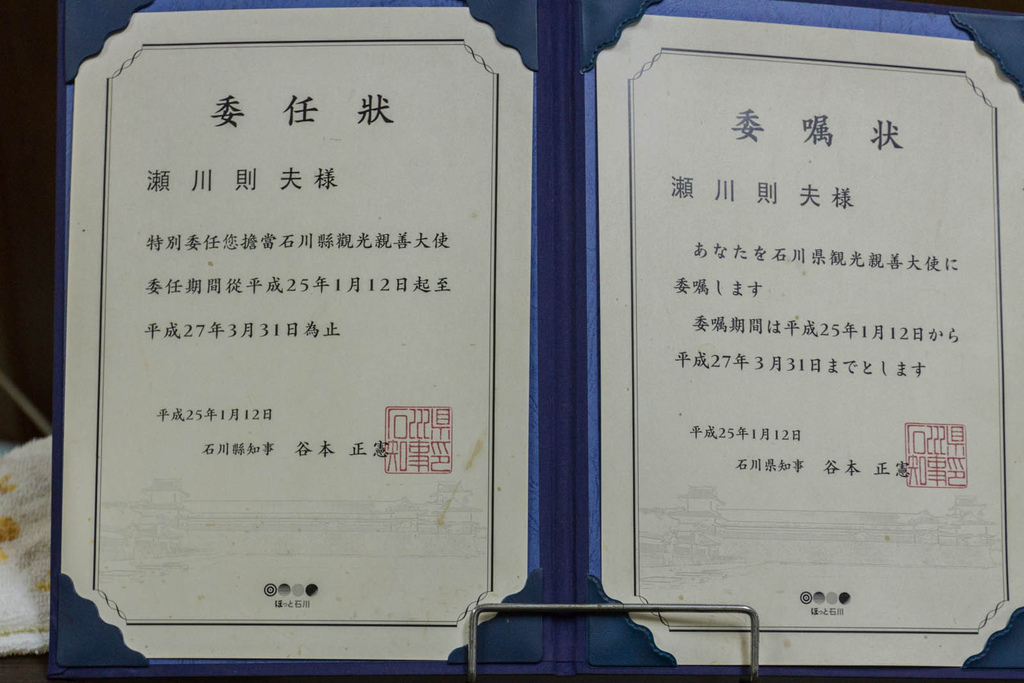 委任狀
瀬川則夫様
特別委任您擔當石川縣觀光親善大使
委任期間從平成25年1月12日起至
平成27年3月31日為止
平成25年1月12日
石川縣知事 谷本 正憲
石川県知事印
ほっと石川
委嘱状
瀬川則夫様
あなたを石川県観光親善大使に
委嘱します
委嘱期間は平成25年1月12日から
平成27年3月31日までとします
平成25年1月12日
石川県知事 谷本 正憲
石川県知事印
ほっと石川